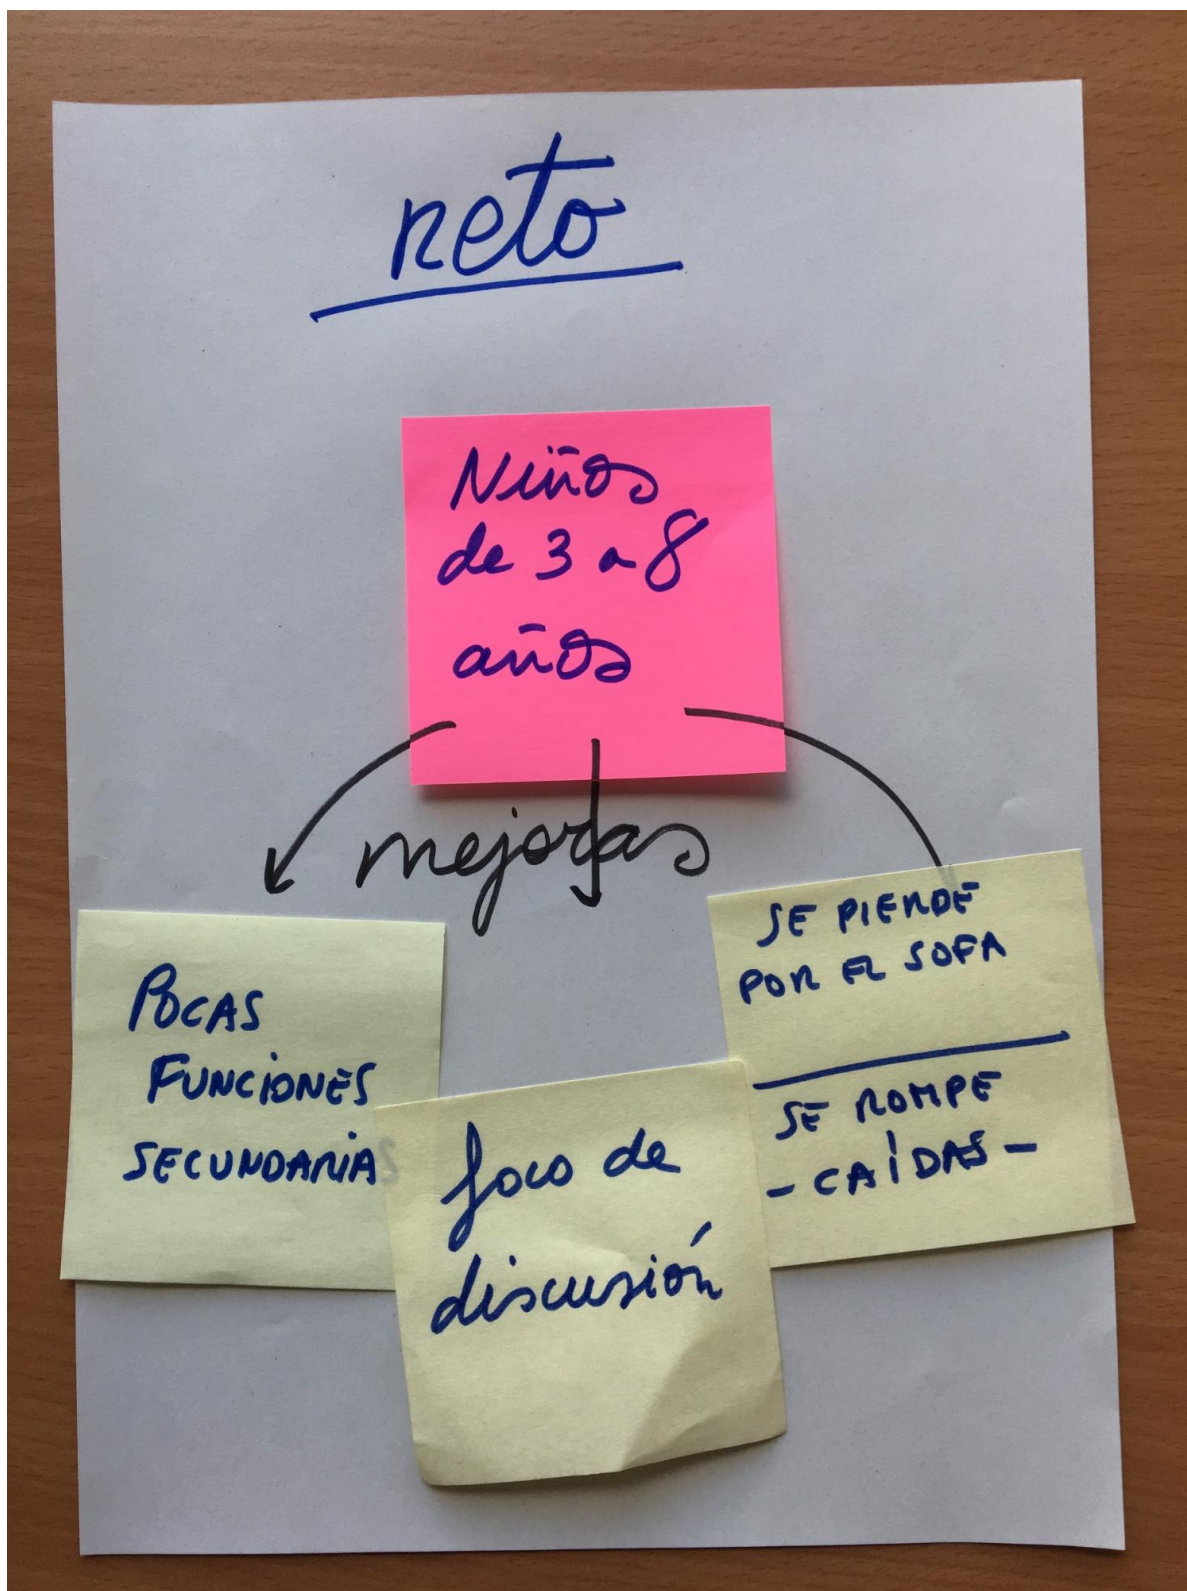 reto
Niños
de 3 a 8
años
mejoras
POCAS
FUNCIONES
SECUNDARIAS
foco de
discusión
SE PIERDE
POR EL SOFA
SE ROMPE
- CAÍDAS -